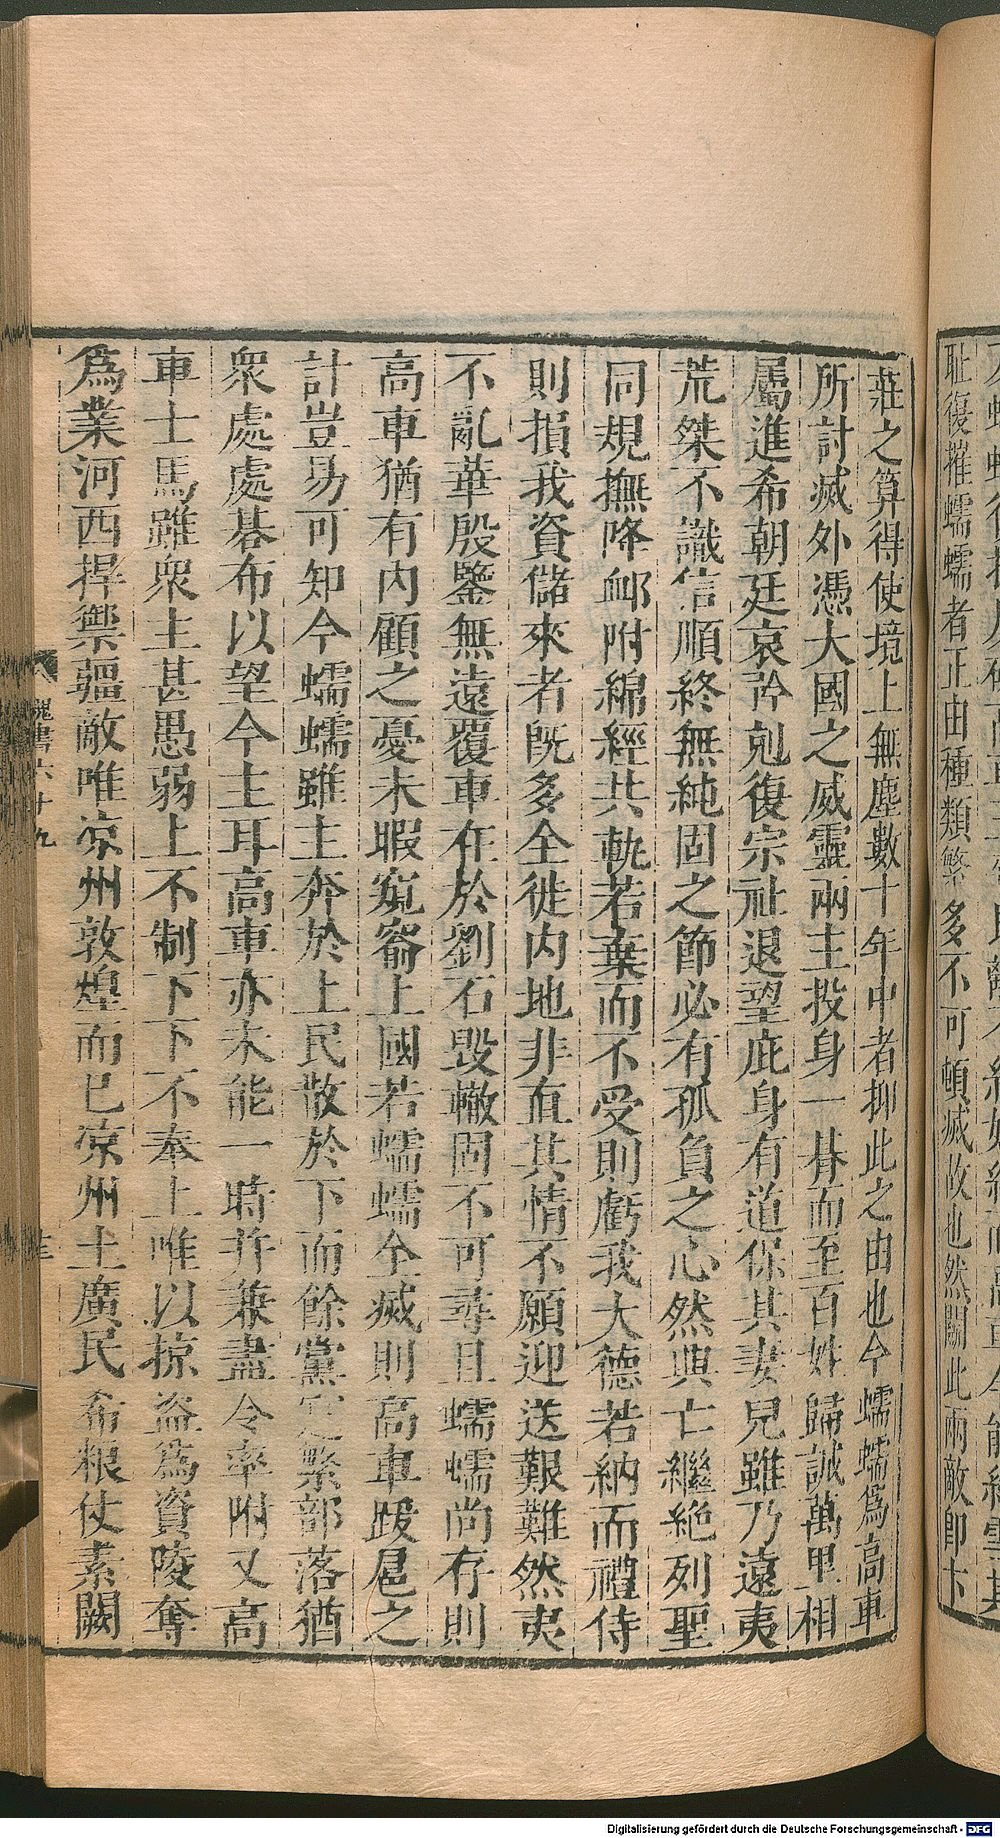 恥復摧蠕蠕者正由種類繁多不可頓滅故也然鬬此兩敵即卞
莊之算得使境上無塵數十年中者抑此之由也今蠕蠕爲高車
所討滅外憑大國之威靈兩主投身一朞而至百姓歸誠萬里相
屬進希朝廷哀矜剋復宗社退望庇身有道保其妻兒雖乃遠夷
荒桀不識信順終無純固之節必有孤負之心然興亡繼絶列聖
同規撫降卹附綿經共軌若棄而不受則虧我大德若納而禮待
則損我資儲來者旣多全徙内地非直其情不願迎送艱難然夷
不亂華殷鑒無遠覆車在於劉石毁轍固不可尋且蠕蠕尚存則
高車猶有内顧之憂未暇窺窬上國若蠕蠕全滅則高車跋扈之
計豈易可知今蠕蠕雖主奔於上民散於下而餘黨寔繁部落猶
衆處處碁布以望今主耳高車亦未能一時并兼盡令率附又高
車士馬雖衆主甚愚弱上不制下下不奉上唯以掠盗爲資陵奪
爲業河西捍禦疆敵唯涼州敦煌而已涼州土廣民希粮仗素闕
魏書六十九
Digitalisierung gefördert durch die Deutsche Forschungsgemeinschaft - DFG